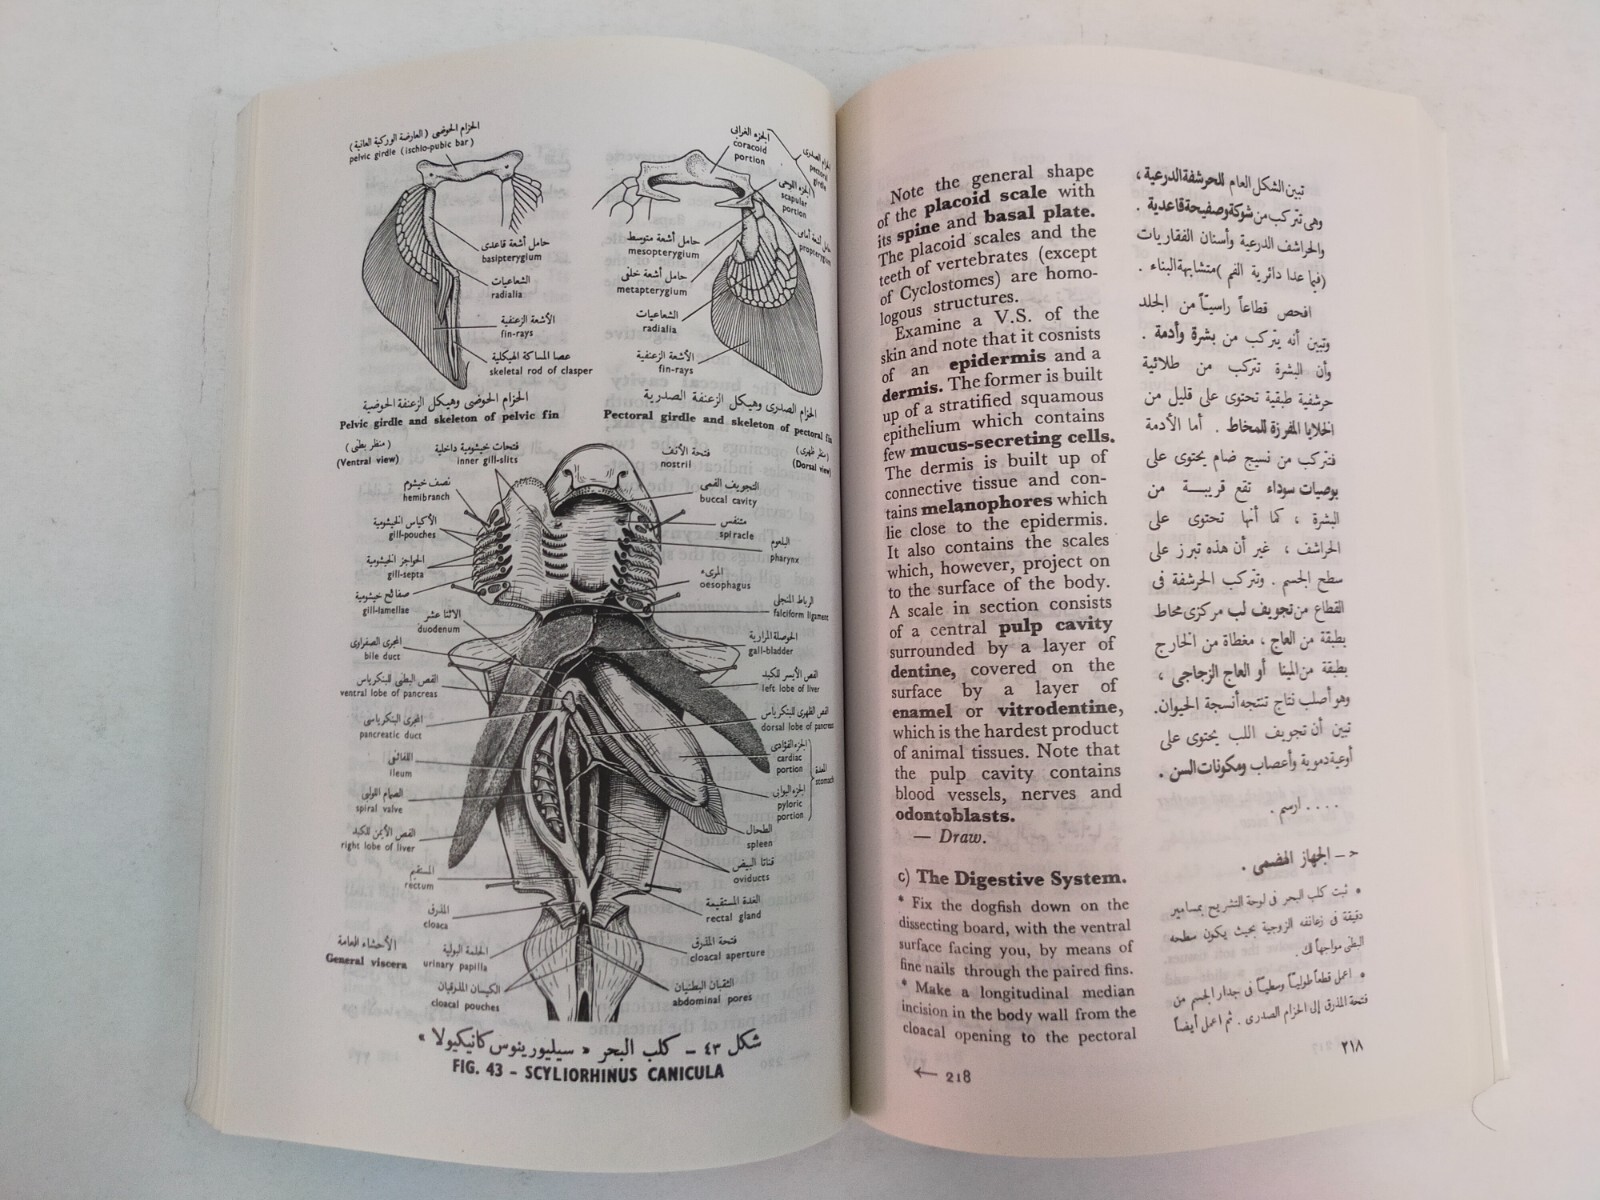 الحزام الحوضى (العارضة الوركية العانية)
pelvic girdle (ischio-pubic bar)
حامل أشعة قاعدى
basipterygium
الشعاعيات
radialia
الأشعة الزعنفية
fin-rays
عصا المساكة الهيكلية
skeletal rod of clasper
الحزام الحوضى وهيكل الزعنفة الحوضية
Pelvic girdle and skeleton of pelvic fin
الجزء الغرابى
coracoid
portion
الحزام الصدرى
pectoral
girdle
الجزء اللوحى
scapular
portion
حامل أشعة أمامى
propterygium
حامل أشعة متوسط
mesopterygium
حامل أشعة خلفى
metapterygium
الشعاعيات
radialia
الأشعة الزعنفية
fin-rays
الحزام الصدرى وهيكل الزعنفة الصدرية
Pectoral girdle and skeleton of pectoral fin
(منظر بطنى)
(Ventral view)
(منظر ظهرى)
(Dorsal view)
فتحات خيشومية داخلية
inner gill-slits
نصف خيشوم
hemibranch
الأكياس الخيشومية
gill-pouches
الحواجز الخيشومية
gill-septa
صفائح خيشومية
gill-lamellae
الاثنا عشر
duodenum
المجرى الصفراوى
bile duct
الفص البطنى للبنكرياس
ventral lobe of pancreas
المجرى البنكرياسى
pancreatic duct
اللفائفى
ileum
الصمام اللولبى
spiral valve
الفص الأيمن للكبد
right lobe of liver
المستقيم
rectum
المذرق
cloaca
الحلمة البولية
urinary papilla
الكيسان المذرقيان
cloacal pouches
الأحشاء العامة
General viscera
فتحة الأنف
nostril
التجويف الفمى
buccal cavity
متنفس
spiracle
البلعوم
pharynx
المرىء
oesophagus
الرباط المنجلى
falciform ligament
الحوصلة المرارية
gall-bladder
الفص الأيسر للكبد
left lobe of liver
الفص الظهرى للبنكرياس
dorsal lobe of pancreas
الجزء الفؤادى
cardiac
portion
المعدة
stomach
الجزء البوابى
pyloric
portion
الطحال
spleen
قناتا البيض
oviducts
الغدة المستقيمة
rectal gland
فتحة المذرق
cloacal aperture
الثقبان البطنيان
abdominal pores
شكل ٤٣ – كلب البحر « سيليورينوس كانيكيولا »
FIG. 43 – SCYLIORHINUS CANICULA
Note the general shape
of the placoid scale with
its spine and basal plate.
The placoid scales and the
teeth of vertebrates (except
of Cyclostomes) are homo-
logous structures.
Examine a V.S. of the
skin and note that it cosnists
of an epidermis and a
dermis. The former is built
up of a stratified squamous
epithelium which contains
few mucus-secreting cells.
The dermis is built up of
connective tissue and con-
tains melanophores which
lie close to the epidermis.
It also contains the scales
which, however, project on
to the surface of the body.
A scale in section consists
of a central pulp cavity
surrounded by a layer of
dentine, covered on the
surface by a layer of
enamel or vitrodentine,
which is the hardest product
of animal tissues. Note that
the pulp cavity contains
blood vessels, nerves and
odontoblasts.
— Draw.
c) The Digestive System.
* Fix the dogfish down on the
dissecting board, with the ventral
surface facing you, by means of
fine nails through the paired fins.
* Make a longitudinal median
incision in the body wall from the
cloacal opening to the pectoral
← 218
تبين الشكل العام للحرشفة الدرعية ،
وهى تتركب من شوكة وصفيحة قاعدية .
والحراشف الدرعية وأسنان الفقاريات
(فيما عدا دائرية الفم) متشابهة البناء .
افحص قطاعاً رأسيًا من الجلد
وتبين أنه يتركب من بشرة وأدمة .
وأن البشرة تتركب من طلائية
حرشفية طبقية تحتوى على قليل من
الخلايا المفرزة للمخاط . أما الأدمة
فتتركب من نسيج ضام يحتوى على
بوصيات سوداء تقع قريبة من
البشرة ، كما أنها تحتوى على
الحراشف ، غير أن هذه تبرز على
سطح الجسم . وتتركب الحرشفة فى
القطاع من تجويف لب مركزى محاط
بطبقة من العاج ، مغطاة من الخارج
بطبقة من المينا أو العاج الزجاجى ،
وهو أصلب نتاج تنتجه أنسجة الحيوان.
تبين أن تجويف اللب يحتوى على
أوعية دموية وأعصاب ومكونات السن .
. . . . ارسم .
ﺣ – الجهاز الهضمى .
• ثبت كلب البحر فى لوحة التشريح بمسامير
دقيقة فى زعانفه الزوجية بحيث يكون سطحه
البطنى مواجهاً لك .
• اعمل قطعاً طوليًا وسطيًا فى جدار الجسم من
فتحة المذرق إلى الحزام الصدرى . ثم اعمل أيضاً
٢١٨